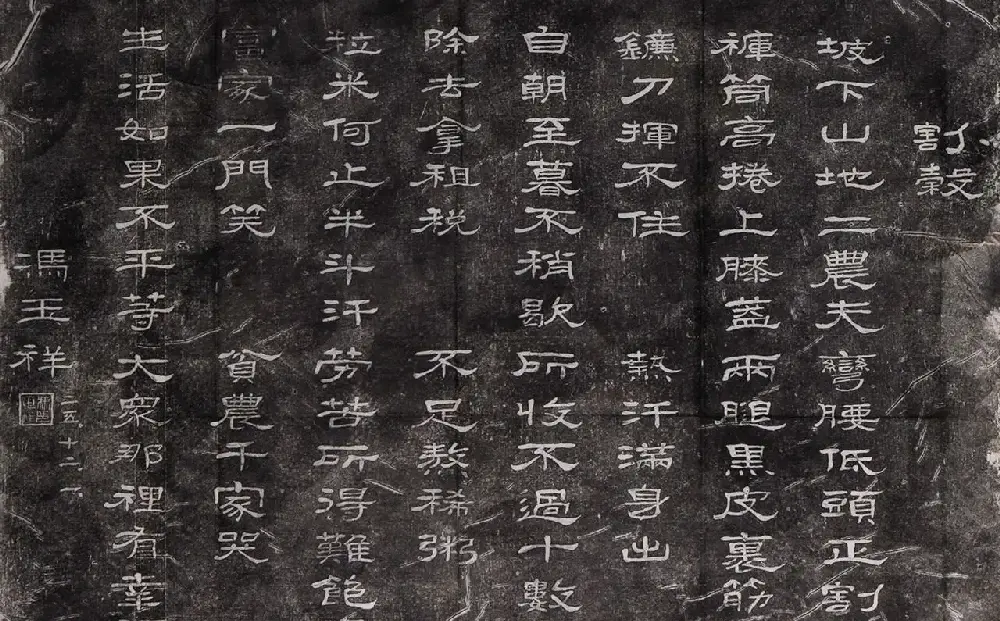 割穀
坡下山地二農夫 彎腰低頭正割
褲筒高捲上膝蓋 兩腿黑皮裏筋
鐮刀揮不住 熱汗滿身出
自朝至暮不稍歇 所收不過十數
除去拿租稅 不足熬稀粥
粒米何止半斗汗 勞苦所得難飽
富家一門笑 貧農千家哭
生活如果不平等 大眾那裡有幸
馮玉祥
二五 十二